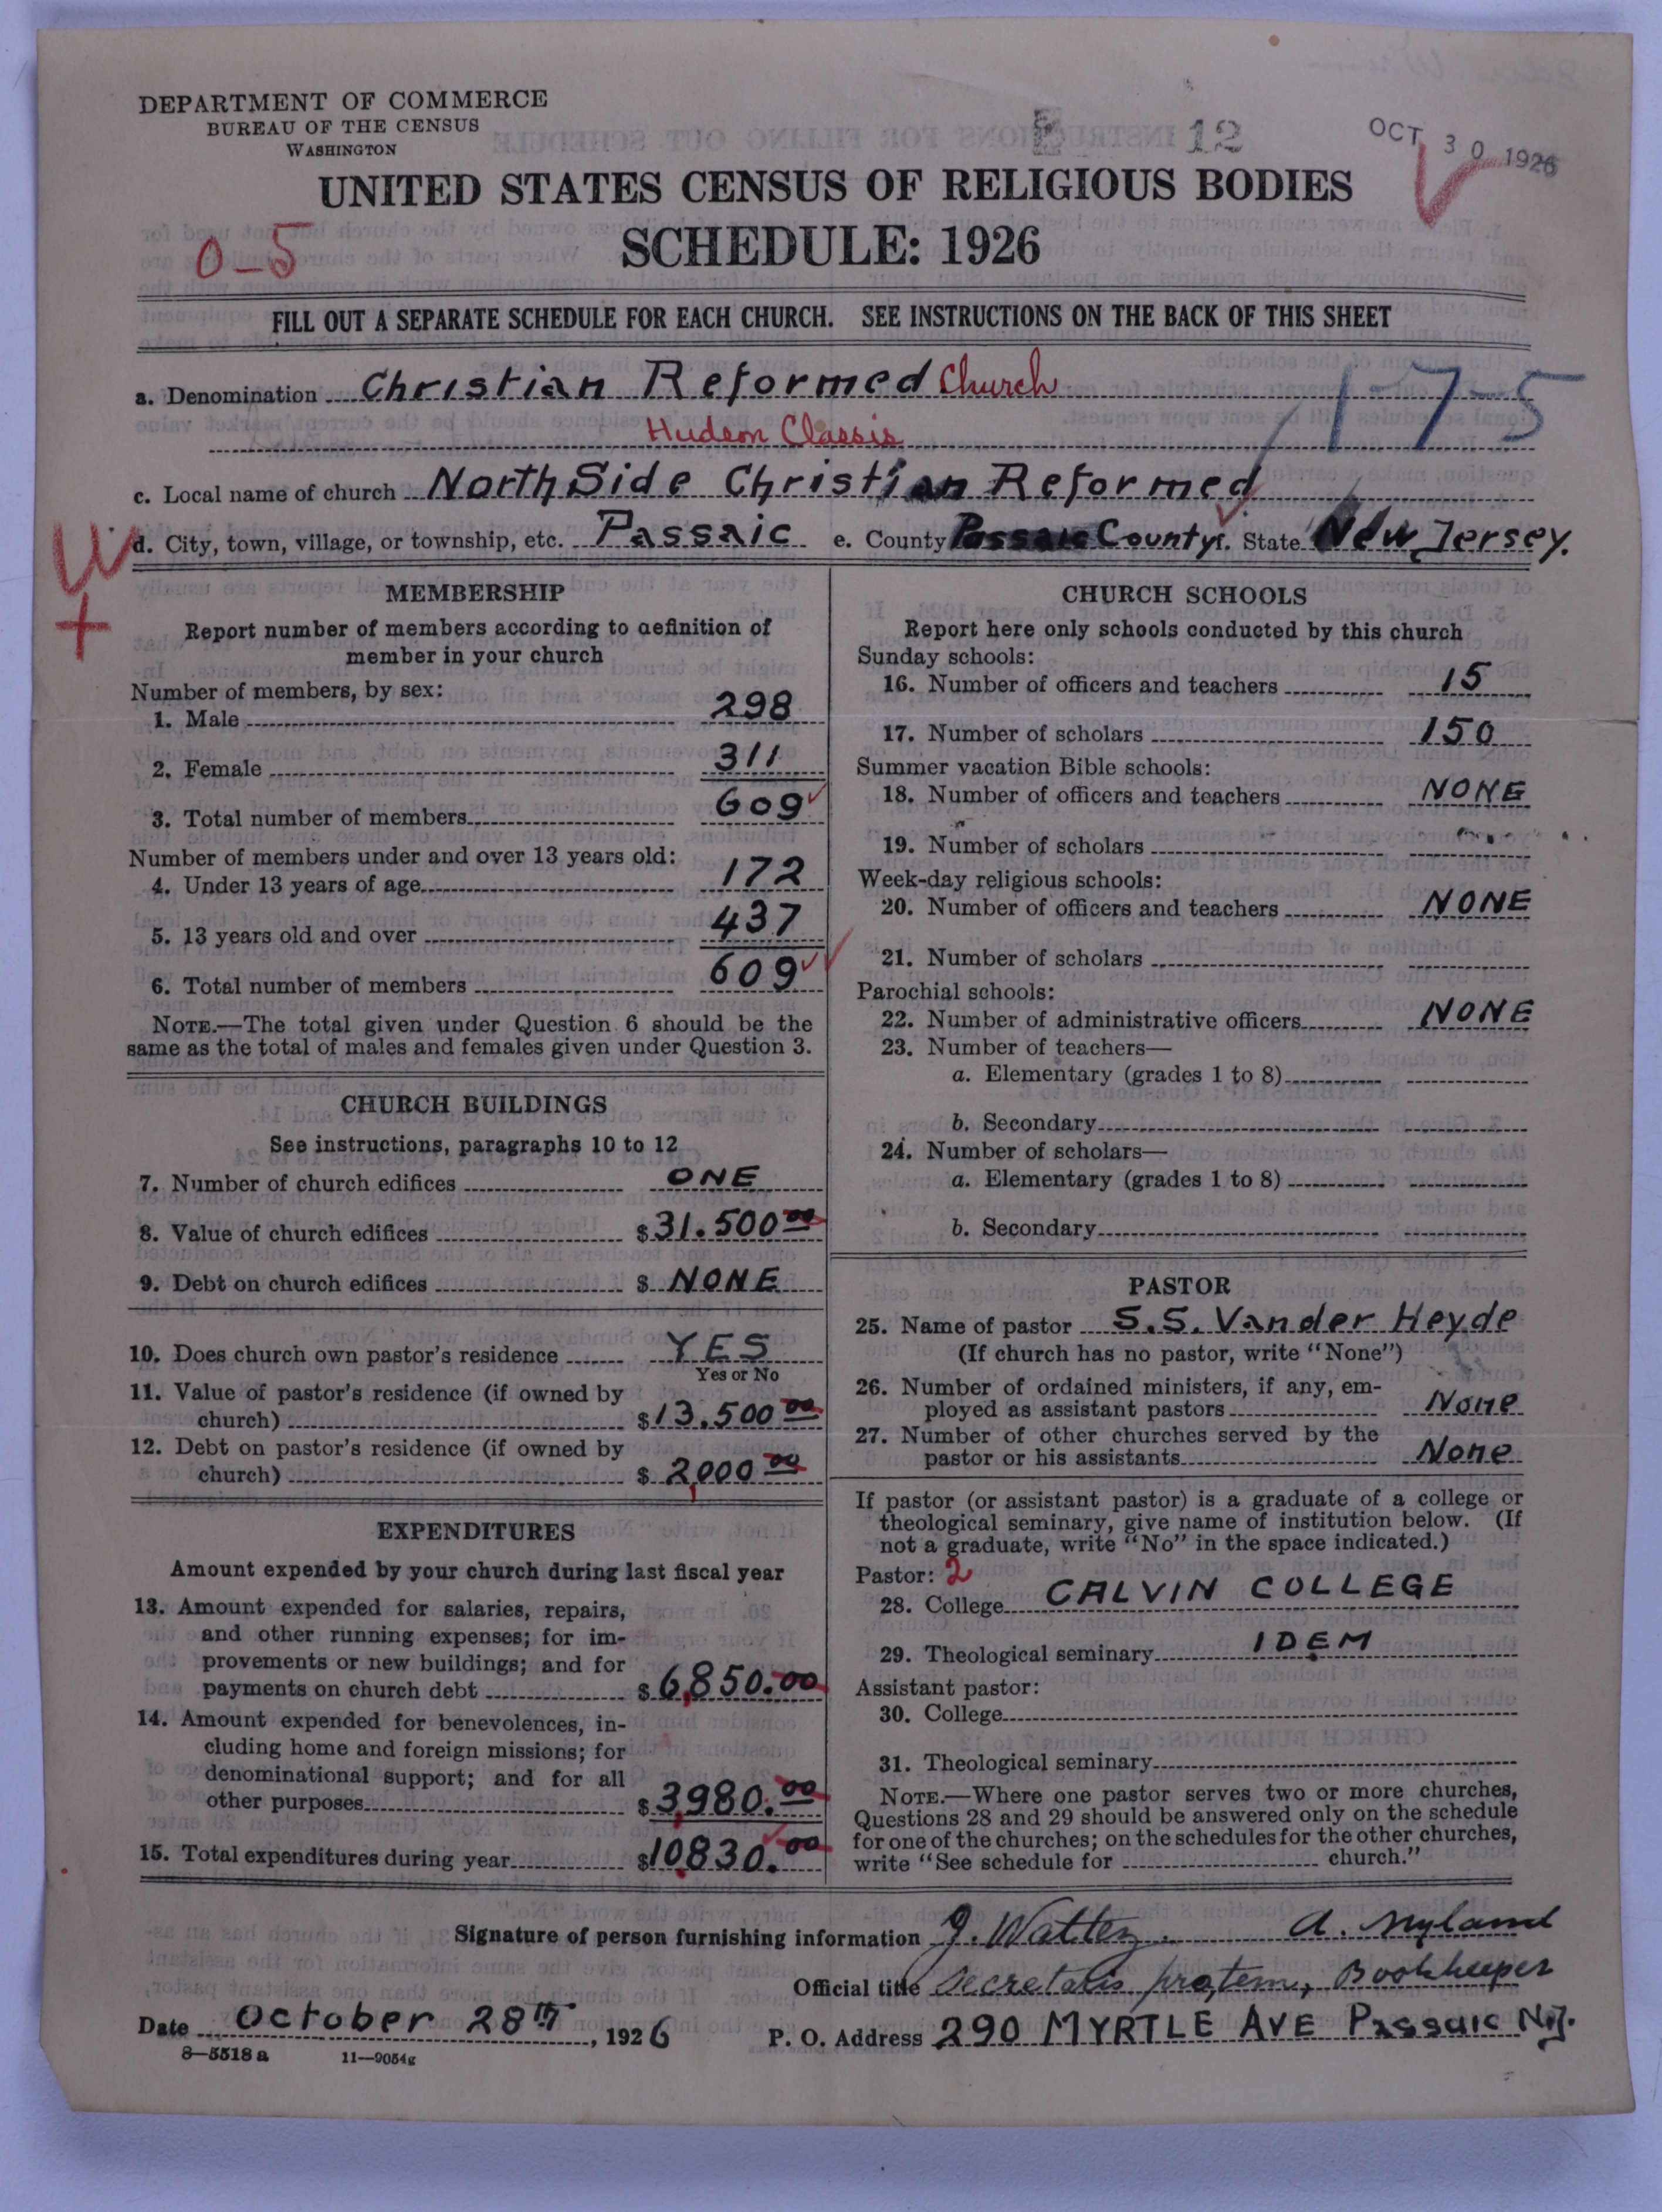 DEPARTMENT OF COMMERCE
BUREAU OF THE CENSUS
WASHINGTON
12
OCT 30 1926
UNITED STATES CENSUS OF RELIGIOUS BODIES
0-5
SCHEDULE: 1926
FILL OUT A SEPARATE SCHEDULE FOR EACH CHURCH. SEE INSTRUCTIONS ON THE BACK OF THIS SHEET
a. Denomination Christian Reformed Church
Hudson Classis
1-7-5
c. Local name of church North Side Christian Reformed
d. City, town, village, or township, etc. Passaic e. County Passaic County f. State New Jersey.
W
+
MEMBERSHIP
Report number of members according to definition of
member in your church
Number of members, by sex:
1. Male 298
2. Female 311
3. Total number of members 609
Number of members under and over 13 years old:
4. Under 13 years of age 172
5. 13 years old and over 437
6. Total number of members 609
NOTE.—The total given under Question 6 should be the
same as the total of males and females given under Question 3.
CHURCH BUILDINGS
See instructions, paragraphs 10 to 12
7. Number of church edifices ONE
8. Value of church edifices $31.500 00
9. Debt on church edifices $ NONE
10. Does church own pastor's residence YES
Yes or No
11. Value of pastor's residence (if owned by
church) $13.500 00
12. Debt on pastor's residence (if owned by
church) $ 2,000 00
EXPENDITURES
Amount expended by your church during last fiscal year
13. Amount expended for salaries, repairs,
and other running expenses; for im-
provements or new buildings; and for
payments on church debt $ 6,850.00
14. Amount expended for benevolences, in-
cluding home and foreign missions; for
denominational support; and for all
other purposes $ 3,980.00
15. Total expenditures during year $10,830.00
CHURCH SCHOOLS
Report here only schools conducted by this church
Sunday schools:
16. Number of officers and teachers 15
17. Number of scholars 150
Summer vacation Bible schools:
18. Number of officers and teachers NONE
19. Number of scholars
Week-day religious schools:
20. Number of officers and teachers NONE
21. Number of scholars
Parochial schools:
22. Number of administrative officers NONE
23. Number of teachers—
a. Elementary (grades 1 to 8)
b. Secondary
24. Number of scholars—
a. Elementary (grades 1 to 8)
b. Secondary
PASTOR
25. Name of pastor S.S. Vander Heyde
(If church has no pastor, write "None")
26. Number of ordained ministers, if any, em-
ployed as assistant pastors None
27. Number of other churches served by the
pastor or his assistants None
If pastor (or assistant pastor) is a graduate of a college or
theological seminary, give name of institution below. (If
not a graduate, write "No" in the space indicated.)
Pastor: 2
28. College CALVIN COLLEGE
29. Theological seminary IDEM
Assistant pastor:
30. College
31. Theological seminary
NOTE.—Where one pastor serves two or more churches,
Questions 28 and 29 should be answered only on the schedule
for one of the churches; on the schedules for the other churches,
write "See schedule for church."
Signature of person furnishing information J. Watter A. Nyland
Official title Secretaris protem, Bookkeeper
Date October 28th, 1926 P. O. Address 290 MYRTLE AVE Passaic N.J.
8—5518 a 11—9054g